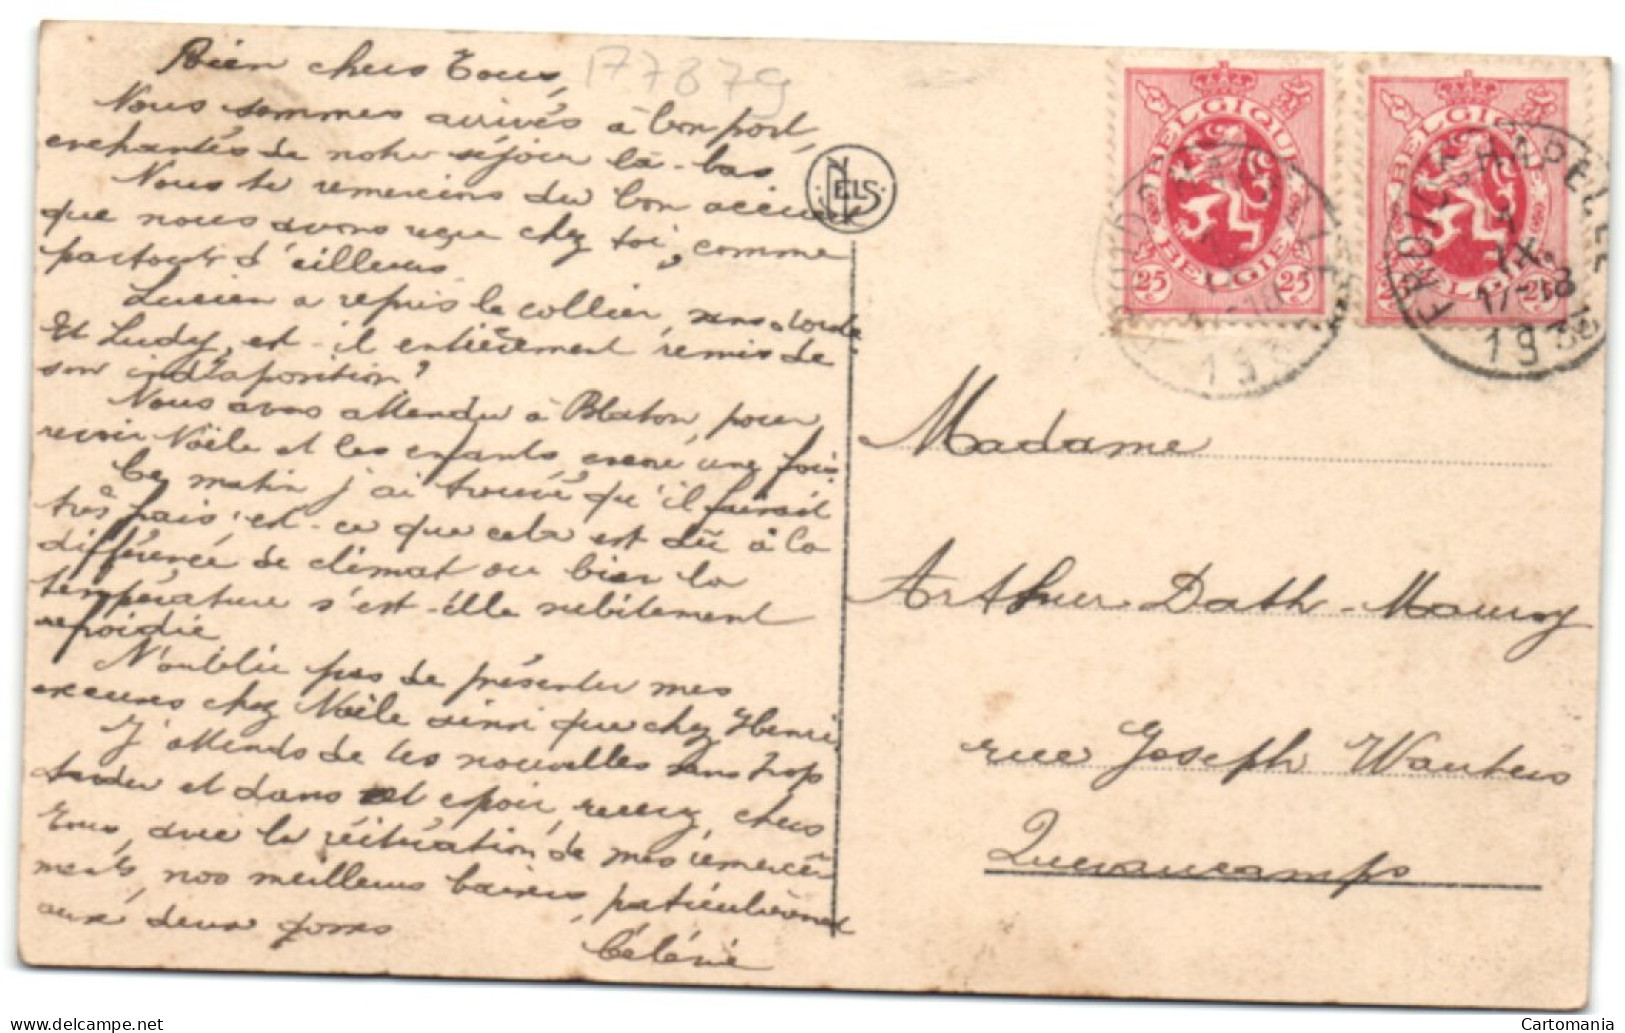 Bien chers Tous,
177879
Nous sommes arrivés à bon port,
enchantés de notre séjour là-bas
Nous te remercions du bon accueil
que nous avons reçu chez toi, comme
partout d'ailleurs
Lucien a repris le collier, sans
Et Ludy, est-il entièrement remis de
son indisposition?
Nous avons attendu à Blaton, pour
revoir Noële et les enfants encore une fois.
Ce matin j'ai trouvé qu'il faisait
très frais; est-ce que cela est dû à la
différence de climat ou bien la
température s'est-elle subitement
refroidie
N'oublie pas de présenter mes
excuses chez Noële ainsi que chez Henri.
J'attends de tes nouvelles sans trop
tarder et dans cet espoir, recevez, chers
Tous, avec la réitération de mes remercie
ments, nos meilleurs baisers, particulièrement
aux deux gosses
Célénie
NELS
BELGIQUE
BELGIE
25 25
BELGIQUE
BELGIE
25 25
FROIDCHAPELLE
1
IX.
17-18
193
Madame
Arthur Dath-Maury
rue Joseph Wauters
Quevaucamps
Cartomania